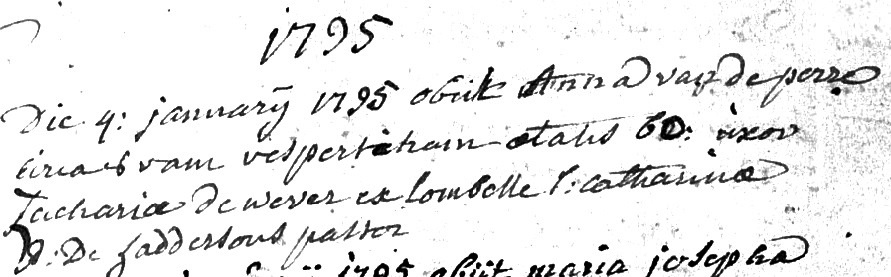 1795
Die 4: januarÿ 1795 obiit Anna van de perre
circa 6 vam vespertinam etatis 60: uxor
Zachariæ de wever ex Lombelle S: catharinæ
De pastor
1795 obiit maria josepha